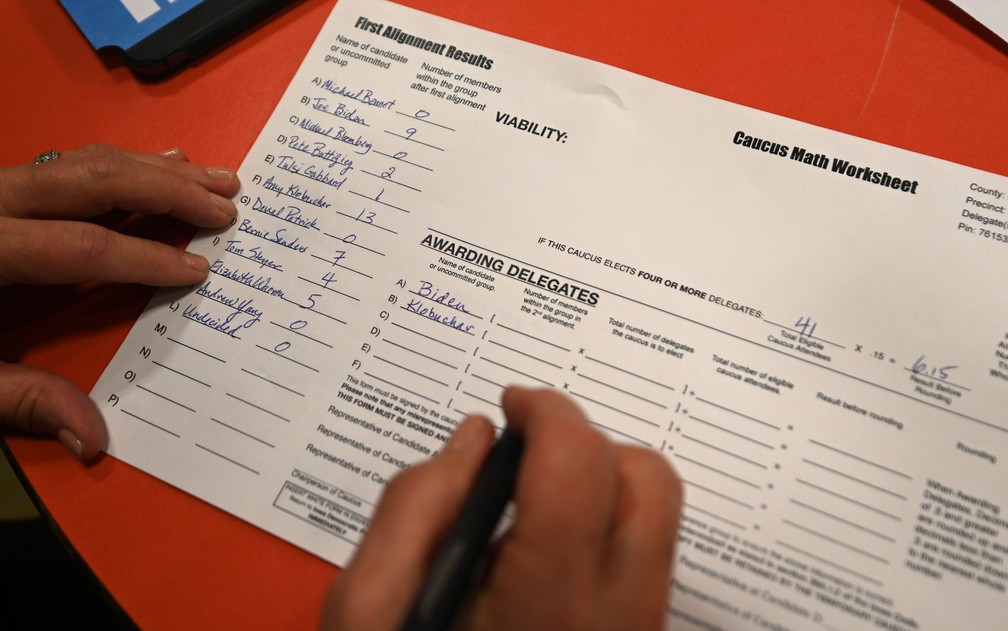 First Alignment Results
Name of candidate
or uncommitted
group
Number of members
within the group
after first alignment
A) Michael Bennet 0
B) Joe Biden 9
C) Michael Bloomberg 0
D) Pete Buttigieg 2
E) Tulsi Gabbard 1
F) Amy Klobuchar 13
G) Deval Patrick 0
Bernie Sanders 7
I) Tom Steyer 4
Elizabeth Warren 5
Andrew Yang 0
L) Undecided 0
M)
N)
O)
P)
VIABILITY:
Caucus Math Worksheet
County:
Precinct:
Delegate(
Pin: 76153
IF THIS CAUCUS ELECTS FOUR OR MORE DELEGATES:
41
Total Eligible
Caucus Attendees
X .15 =
6.15
Result Before
Rounding
AWARDING DELEGATES
Name of candidate
or uncommitted group
Number of members
within the group in
the 2nd alignment
Total number of delegates
the caucus is to elect
Total number of eligible
caucus attendees
Result before rounding
Rounding
A) Biden
B) Klobuchar
C)
D)
E)
F)
This form must be signed by the caucus
Please note that any misrepresent
THIS FORM MUST BE SIGNED AN
Representative of Candidate A
Representative of Candid
Representative of Cand
Chairperson of Caucus
INSERT WHITE FORM IN
Return to Iowa Democratic P
IMMEDIATELY
When Awarding
Delegates,
of .5 and greater
are rounded up and
decimals less than
.5 are rounded down
to the nearest whole
number.
Representative of Candidate D